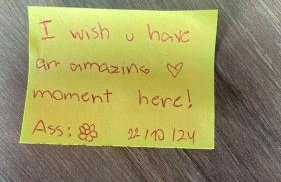 I wish u have
an amazing ♡
moment here!
Ass: 22/10/24